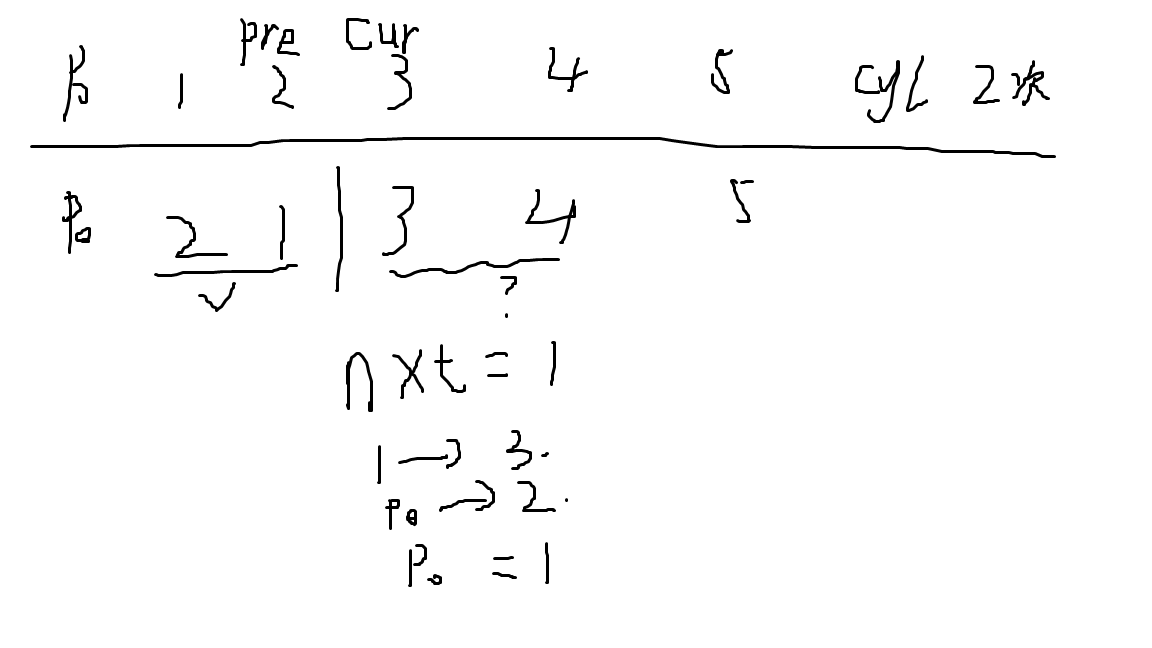 pre cur
P0 1 2 3 4 5 cyl 2次
P0 2 1 | 3 4 5
✓ ?
nxt = 1
1 → 3.
P0 → 2.
P0 = 1